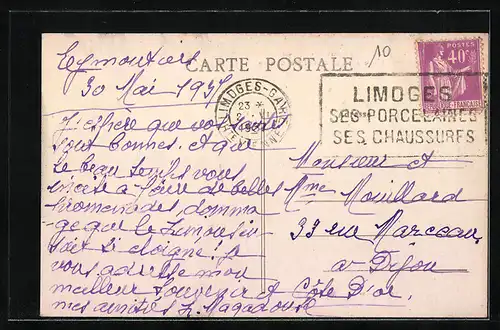 Eymoutiers
CARTE POSTALE
10
30 Mai 1937
J'espère que vos santés
sont bonnes. et que
le beau temps vous
incite à faire de belles
promenades, domma
ge que le Limousin
soit si éloigné! je
vous adresse mon
meilleur souvenir et
mes amitiés L. Magadoux
LIMOGES-GARE
23
VIENNE
POSTES
40c
LIMOGES
SES PORCELAINES
SES CHAUSSURES
Monsieur et
Mme Mouillard
33 rue Marceau
à Dijon
Côte D'or.